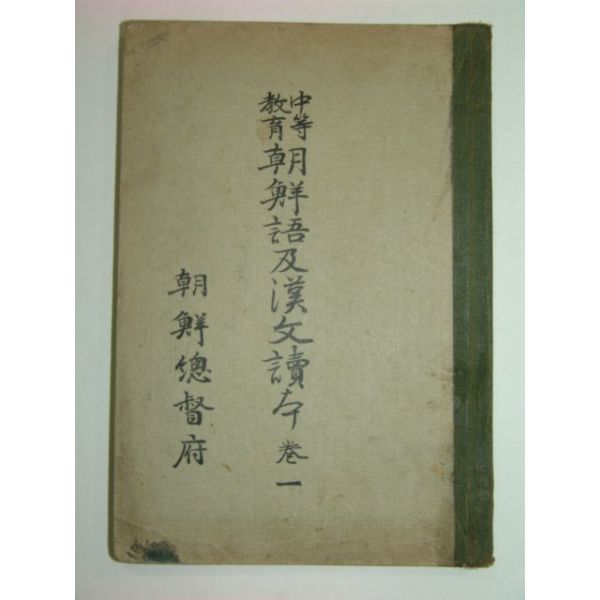 中等教育朝鮮語及漢文讀本 卷一
朝鮮總督府